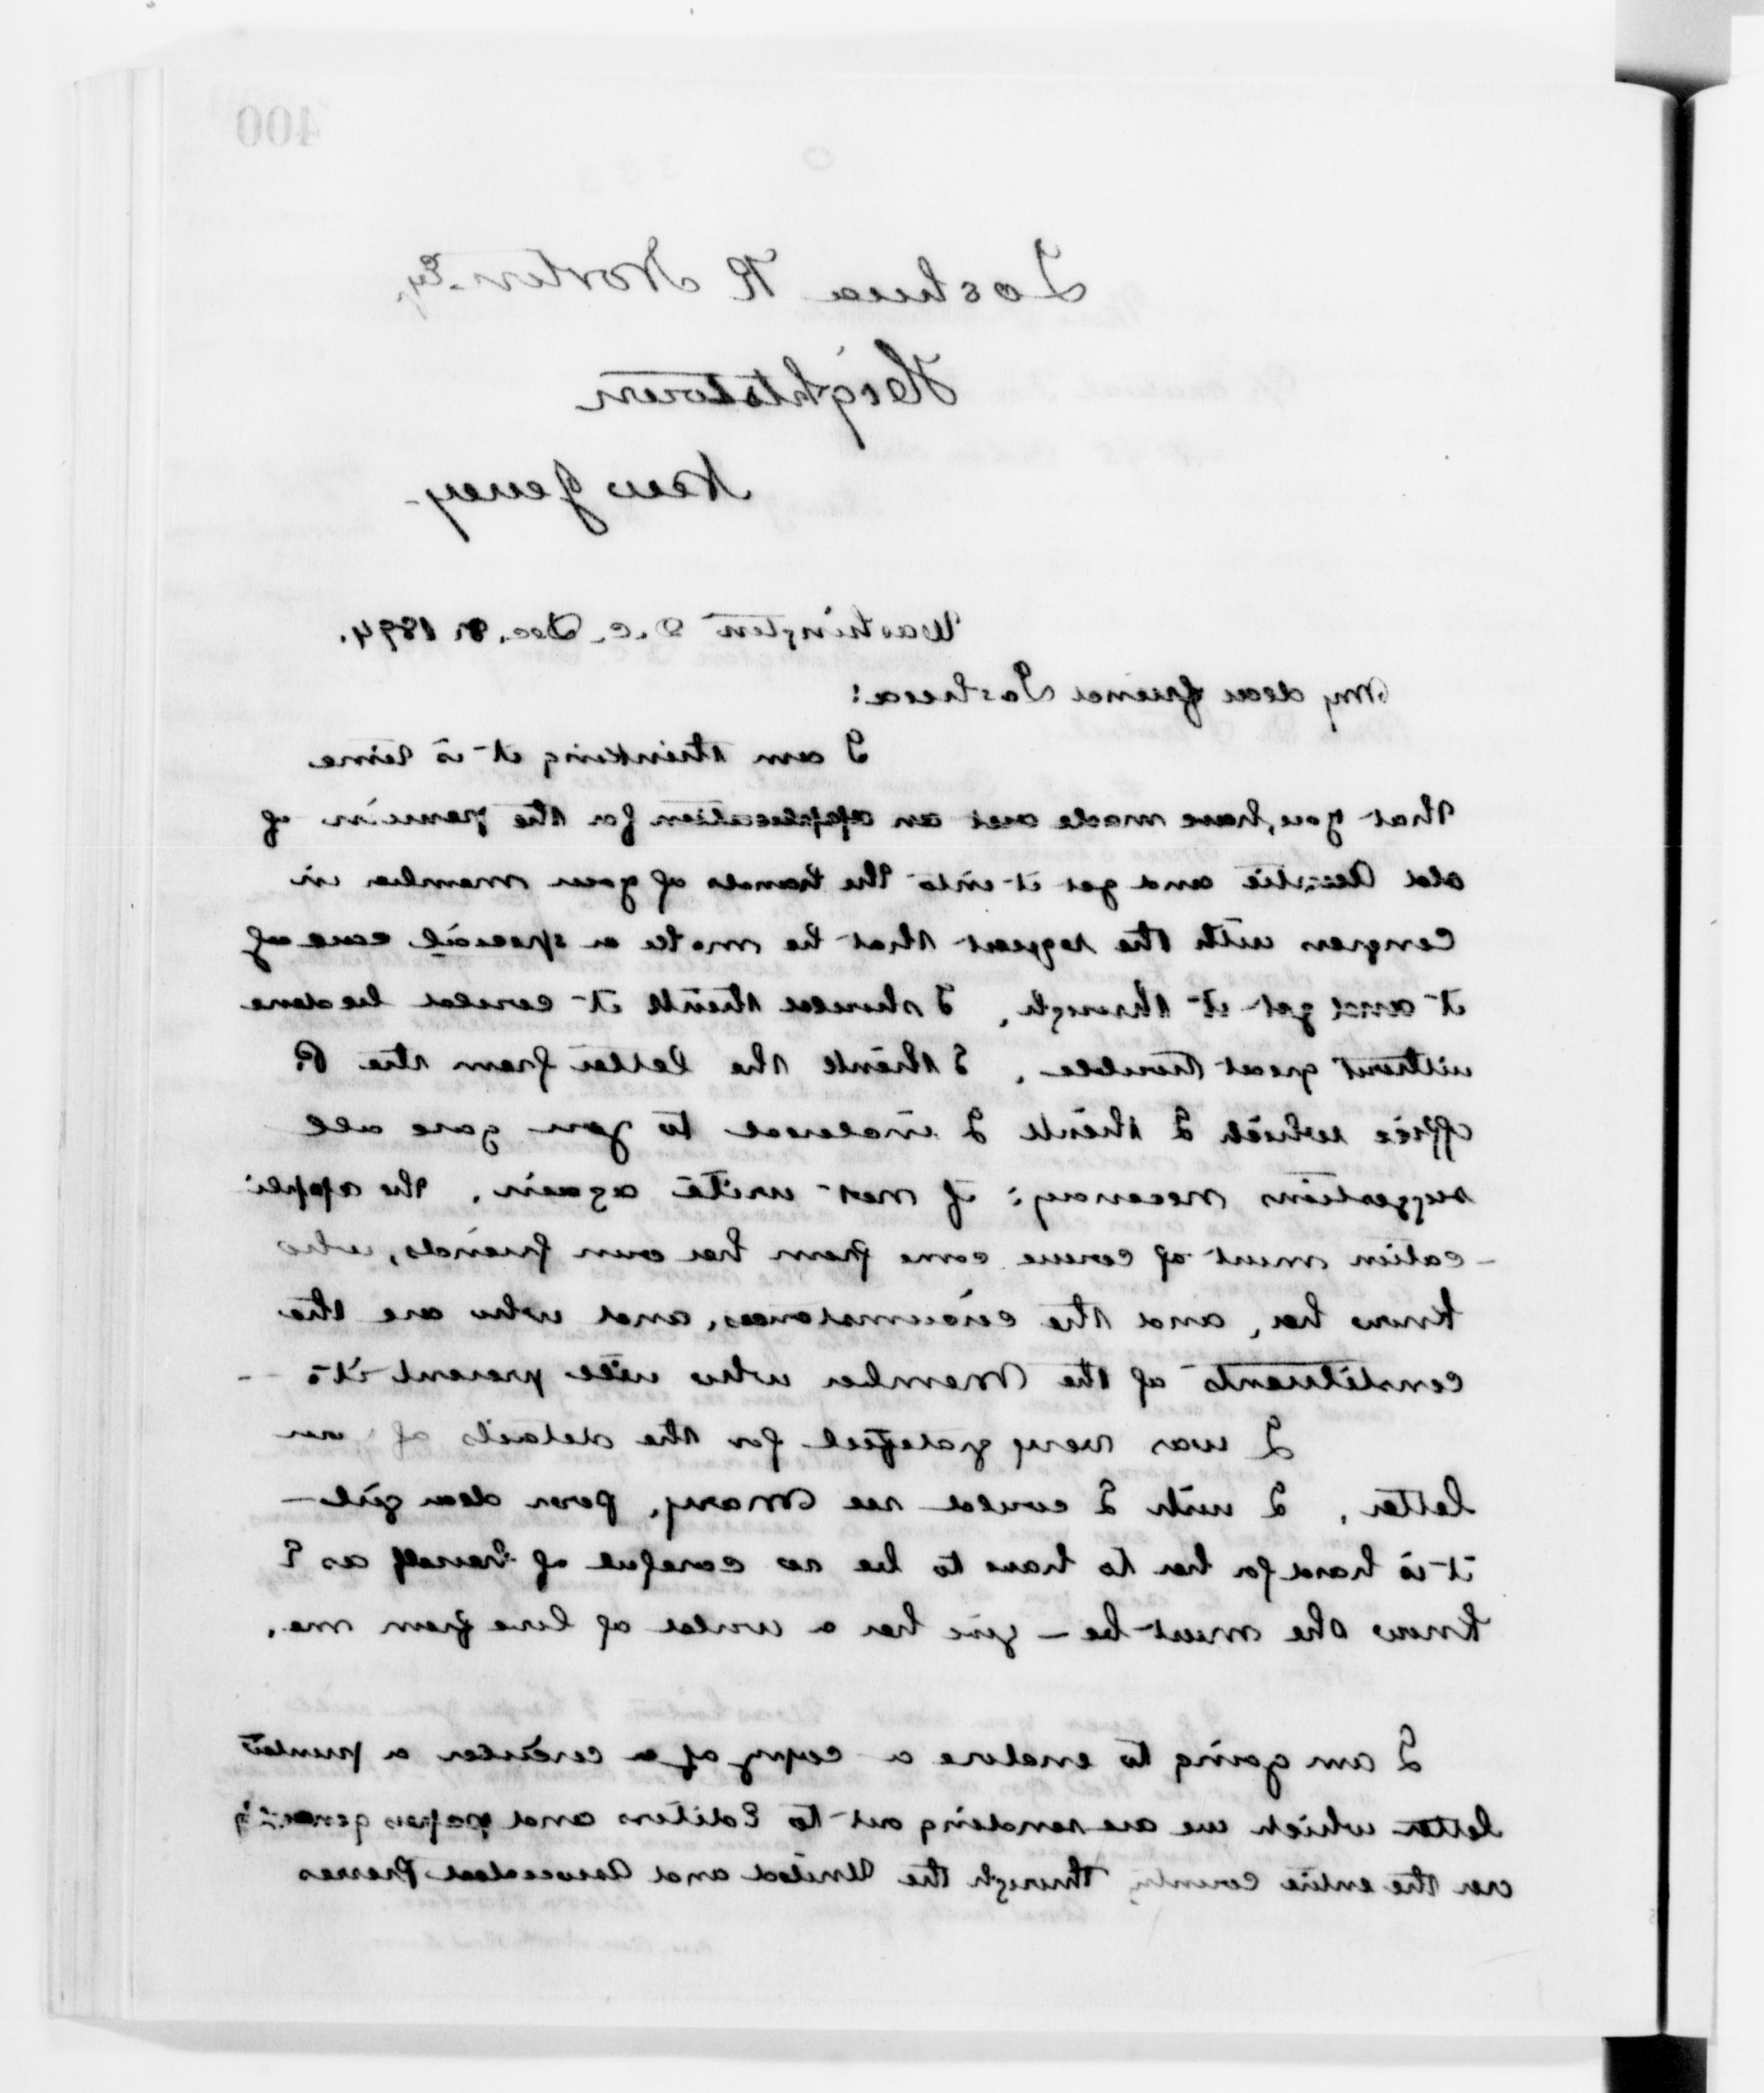 400
Joshua R Norton Esq,
Heightstown
New Jersey-
Washington D.C. Dec. 8, 1894.
My dear friend Joshua:
I am thinking it is time
that you, have made out an application for the pension of
old and get it into the hands of your member in
Congress with the request that he make a special case of
it and get it through, I should think it could be done
without great trouble. I think the letter from the P.
office which I think I inclosed to you gave all
suggestions necessary: if not write again. The appli
-cation must of course come from her own friends, who
know her, and the circumstances, and who are the
constituents of the Member who will present it. -
I was very grateful for the details of your
letter. I wish I could see Mary, poor dear girl-
it is hard for her to have to be so careful of herself as I
know she must be - give her a world of love from me.
I am going to enclose a copy of a circular a printed
letter which we are sending out to Editors and papers generally
over the entire country through the United and Associated Presses